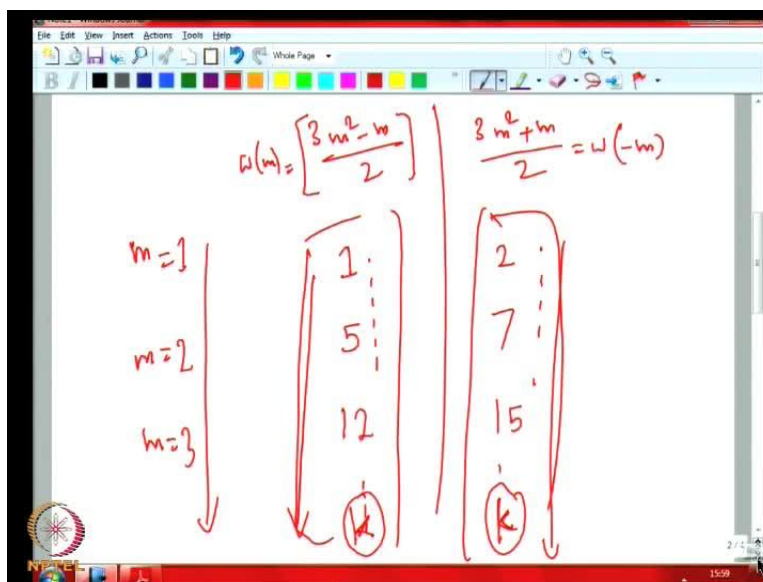 File Edit View Insert Actions Tools Help
Whole Page
B I
w(m) = [3m² - m / 2] | 3m² + m / 2 = w(-m)
m=1 1 2
m=2 5 7
m=3 12 15
k k
NPTEL
15:59